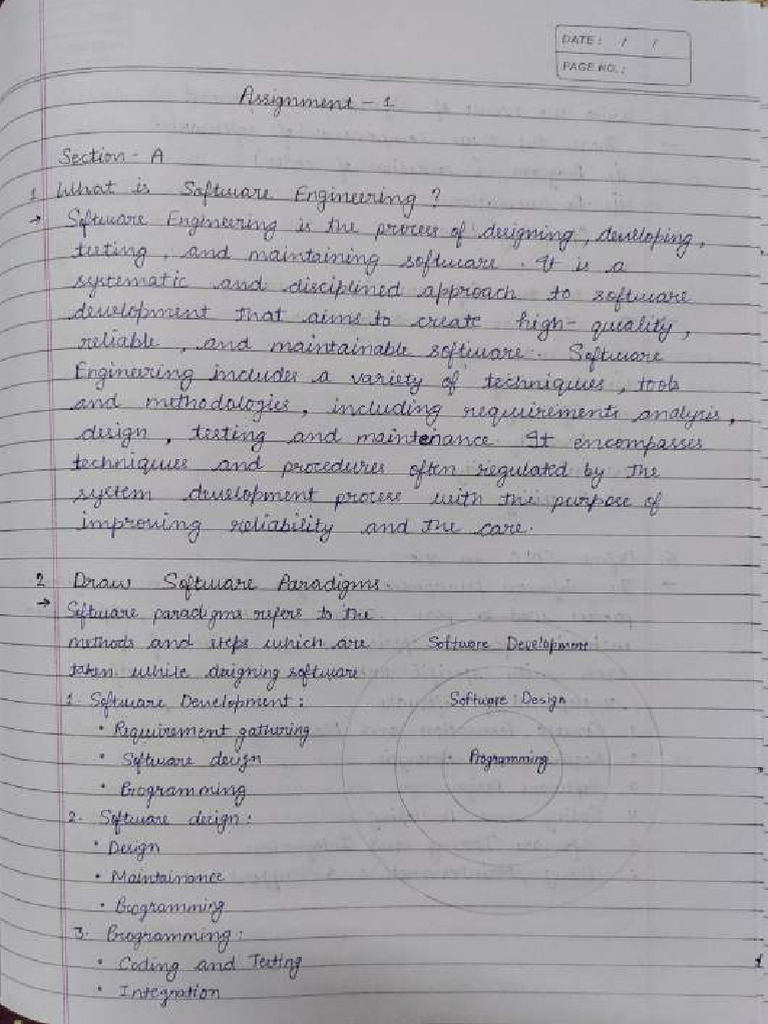 DATE: / /
PAGE NO.:
Assignment - 1
Section - A
1 What is Software Engineering ?
→ Software Engineering is the process of designing, developing,
testing, and maintaining software. It is a
systematic and disciplined approach to software
development that aims to create high-quality,
reliable, and maintainable software. Software
Engineering includes a variety of techniques, tools
and methodologies, including requirements analysis,
design, testing and maintenance. It encompasses
techniques and procedures often regulated by the
system development process with the purpose of
improving reliability and the care.
2 Draw Software Paradigms.
→ Software paradigms refers to the
methods and steps which are
taken while designing software
Software Development
Software Design
Programming
1. Software Development :
• Requirement gathering
• Software design
• Programming
2. Software design :
• Design
• Maintainance
• Programming
3. Programming :
• Coding and Testing
• Integration